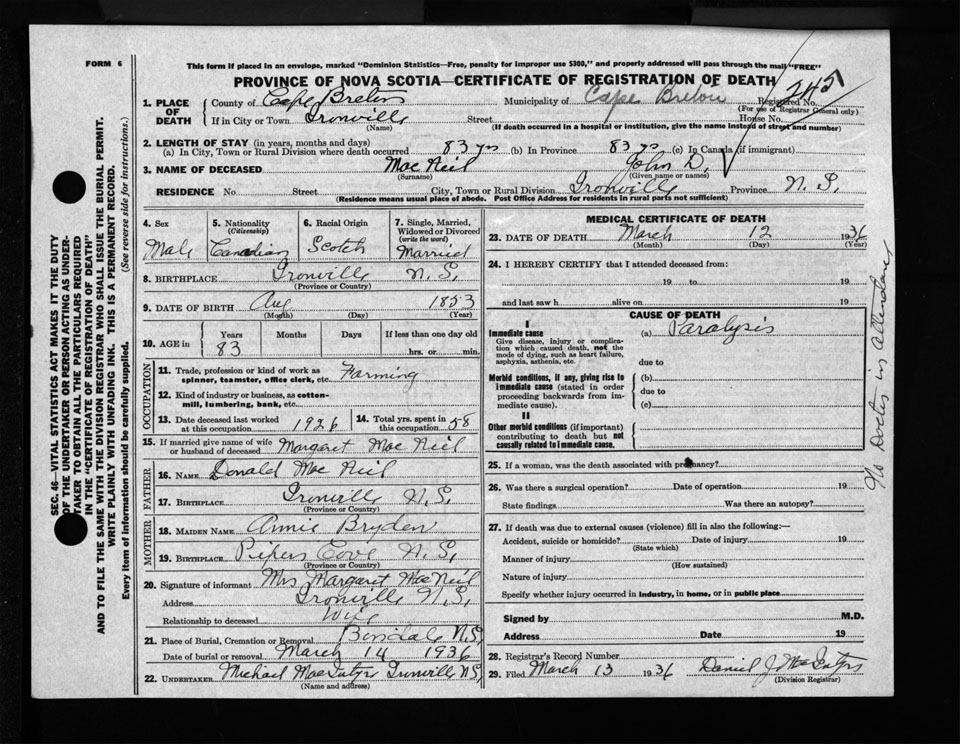 This form if placed in an envelope, marked "Dominion Statistics—Free, penalty for improper use $300," and properly addressed will pass through the mail "FREE"
FORM 6
PROVINCE OF NOVA SCOTIA—CERTIFICATE OF REGISTRATION OF DEATH
245
1. PLACE OF DEATH County of Cape Breton Municipality of Cape Breton Registered No.
(For use of Registrar General only)
If in City or Town Ironville Street House No.
(Name) (If death occurred in a hospital or institution, give the name instead of street and number)
2. LENGTH OF STAY (in years, months and days)
(a) In City, Town or Rural Division where death occurred 83 yrs (b) In Province 83 yrs (c) In Canada (if immigrant)
3. NAME OF DECEASED Mac Neil John D.
(Surname) (Given name or names)
RESIDENCE No. Street City, Town or Rural Division Ironville Province N. S.
(Residence means usual place of abode. Post Office Address for residents in rural parts not sufficient)
4. Sex Male
5. Nationality (Citizenship) Canadian
6. Racial Origin Scotch
7. Single, Married, Widowed or Divorced (write the word) Married
8. BIRTHPLACE Ironville N. S.
(Province or Country)
9. DATE OF BIRTH Aug 1853
(Month) (Day) (Year)
10. AGE in Years Months Days If less than one day old
83 hrs. or min.
OCCUPATION
11. Trade, profession or kind of work as spinner, teamster, office clerk, etc. Farming
12. Kind of industry or business, as cotton-mill, lumbering, bank, etc.
13. Date deceased last worked at this occupation 1926
14. Total yrs. spent in this occupation 58
15. If married give name of wife or husband of deceased Margaret Mac Neil
FATHER
16. NAME Donald Mac Neil
17. BIRTHPLACE Ironville N. S.
(Province or Country)
MOTHER
18. MAIDEN NAME Annie Bryden
19. BIRTHPLACE Pipers Cove N. S.
(Province or Country)
20. Signature of informant Mrs Margaret Mac Neil
Address Ironville N. S.
Relationship to deceased Wife
21. Place of Burial, Cremation or Removal N.S.
Date of burial or removal March 14 1936
22. UNDERTAKER Michael Mac Ironville N.S.
(Name and address)
MEDICAL CERTIFICATE OF DEATH
23. DATE OF DEATH March 12 1936
(Month) (Day) (Year)
24. I HEREBY CERTIFY that I attended deceased from:
19 to 19
and last saw h alive on 19
CAUSE OF DEATH
I
Immediate cause (a) Paralysis
Give disease, injury or complication which caused death, not the mode of dying, such as heart failure, asphyxia, asthenia, etc.
due to
Morbid conditions, if any, giving rise to immediate cause (stated in order proceeding backwards from immediate cause).
(b)
due to
(c)
II
Other morbid conditions (if important) contributing to death but not causally related to immediate cause.
No Doctor in Attendance
25. If a woman, was the death associated with pregnancy?
26. Was there a surgical operation? Date of operation 19
State findings Was there an autopsy?
27. If death was due to external causes (violence) fill in also the following:—
Accident, suicide or homicide? Date of injury 19
(State which)
Manner of injury
(How sustained)
Nature of injury
Specify whether injury occurred in industry, in home, or in public place
Signed by M.D.
Address Date 19
28. Registrar's Record Number
29. Filed March 13 1936 Daniel J.
(Division Registrar)
SEC. 46—VITAL STATISTICS ACT MAKES IT THE DUTY
OF THE UNDERTAKER OR PERSON ACTING AS UNDER-
TAKER TO OBTAIN ALL THE PARTICULARS REQUIRED
IN THE "CERTIFICATE OF REGISTRATION OF DEATH"
AND TO FILE THE SAME WITH THE DIVISION REGISTRAR WHO SHALL ISSUE THE BURIAL PERMIT.
WRITE PLAINLY WITH UNFADING INK. THIS IS A PERMANENT RECORD.
Every item of information should be carefully supplied. (See reverse side for instructions.)